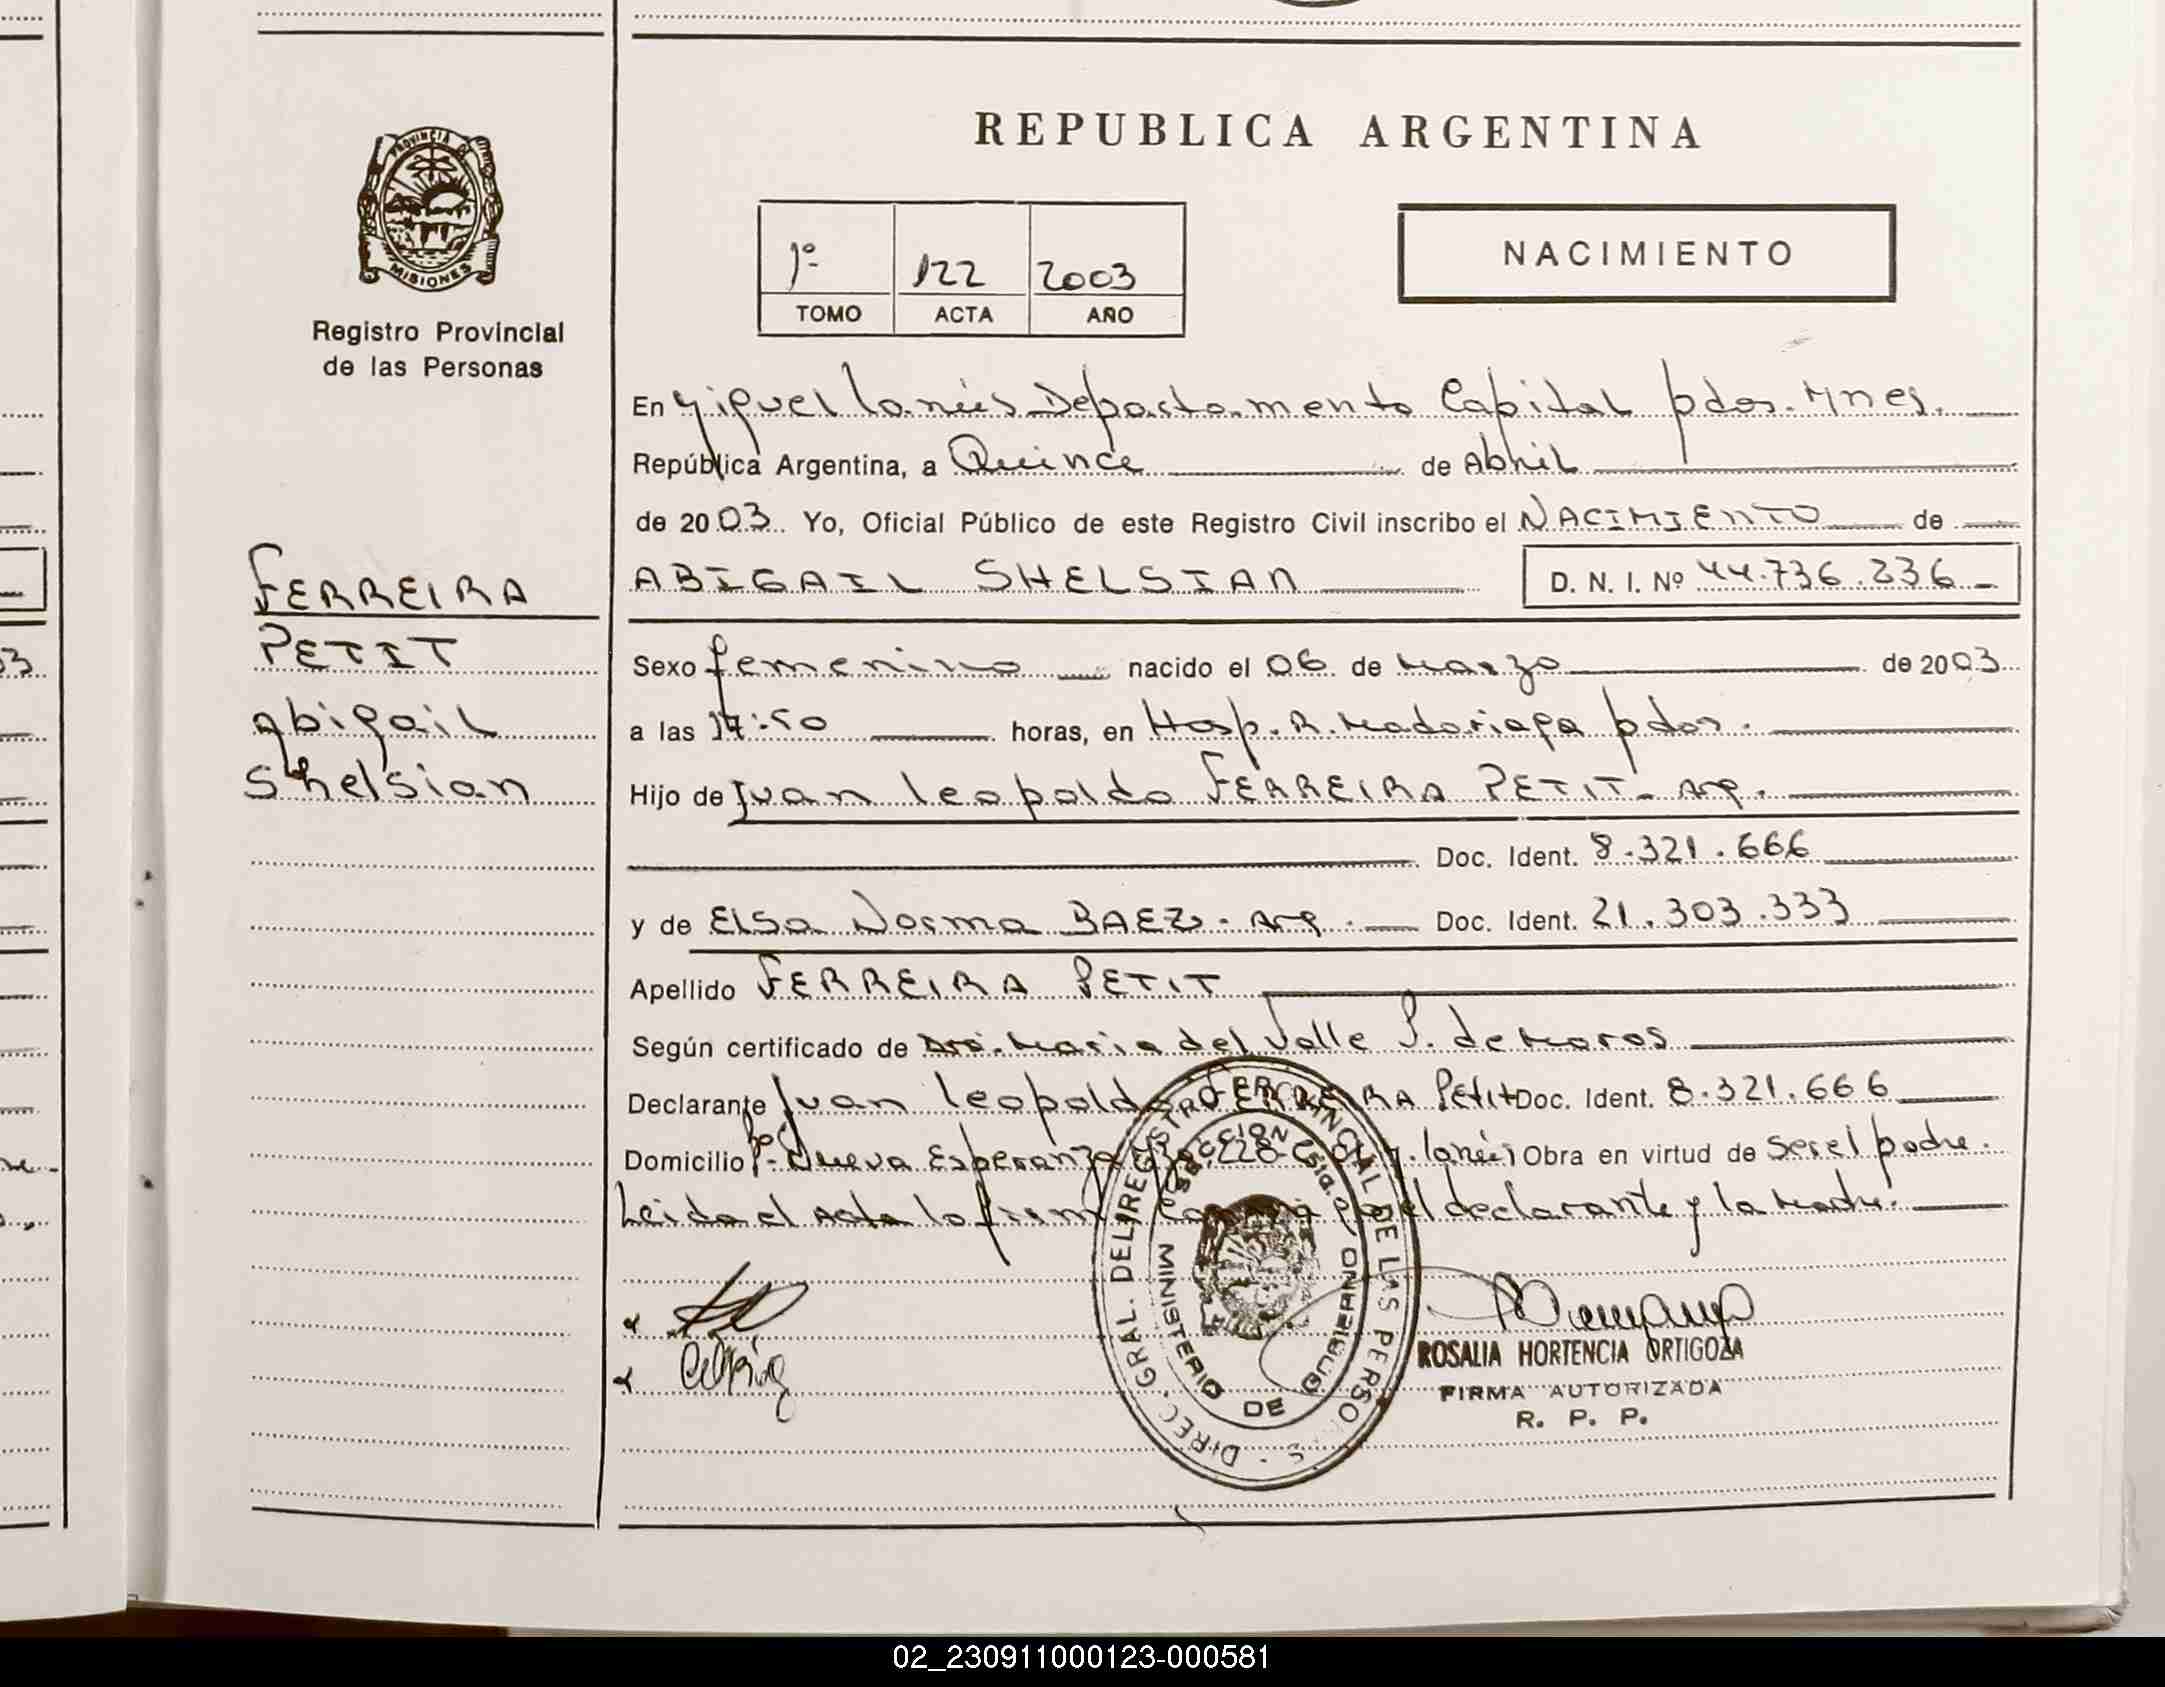 REPUBLICA ARGENTINA
PROVINCIA DE MISIONES
Registro Provincial
de las Personas
1º 122 2003
TOMO ACTA AÑO
NACIMIENTO
En Miguel Lanús Departamento Capital pdas. Mnes.
República Argentina, a Quince de Abril
de 2003 Yo, Oficial Público de este Registro Civil inscribo el NACIMIENTO de
ABIGAIL SHELSIAN D. N. I. Nº 44.736.236
FERREIRA
PETIT
Abigail
Shelsian
Sexo femenino nacido el 06 de Marzo de 2003
a las 17:50 horas, en Hosp. R. Madariaga pdas.
Hijo de Juan Leopoldo FERREIRA PETIT - Arg.
Doc. Ident. 8.321.666
y de Elsa Norma BAEZ - Arg. Doc. Ident. 21.303.333
Apellido FERREIRA PETIT
Según certificado de Dra. Maria del Valle P. de Maros
Declarante Juan Leopoldo FERREIRA Petit Doc. Ident. 8.321.666
Domicilio Nueva Esperanza 228 Lanús Obra en virtud de ser el padre.
Leida el Acta la firma el declarante y la Madre.
DIREC. GRAL. DEL REGISTRO PROVINCIAL DE LAS PERSONAS
SECCION
MINISTERIO DE GOBIERNO
ROSALIA HORTENCIA ORTIGOZA
FIRMA AUTORIZADA
R. P. P.
02_230911000123-000581